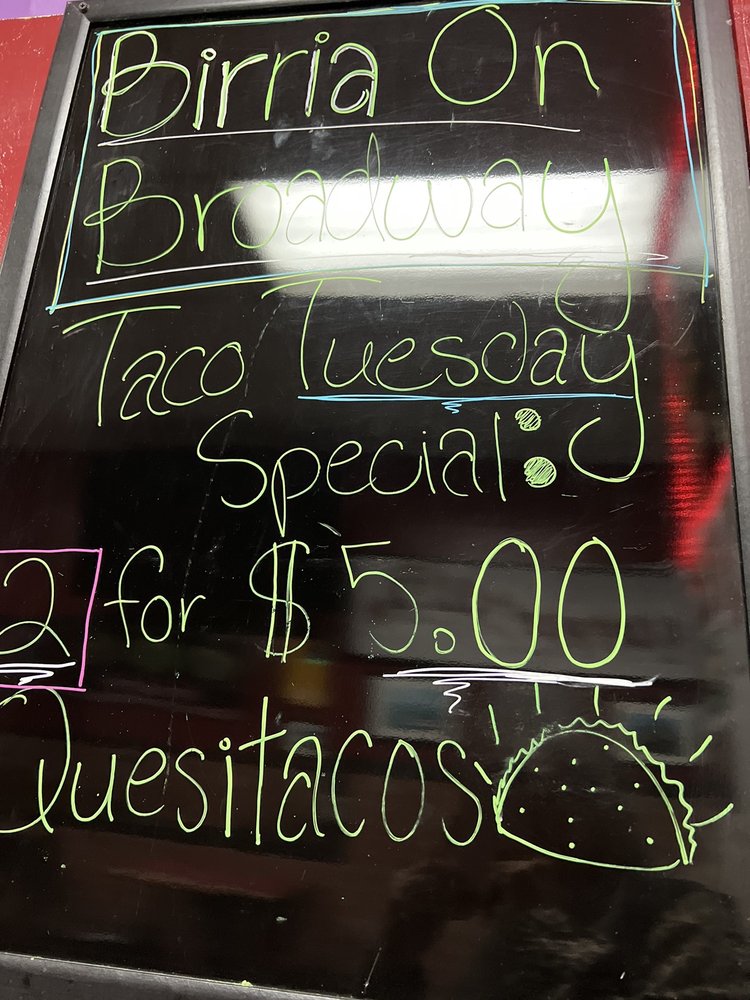 Birria On
Broadway
Taco Tuesday
Special:
2 for $5.00
Quesitacos